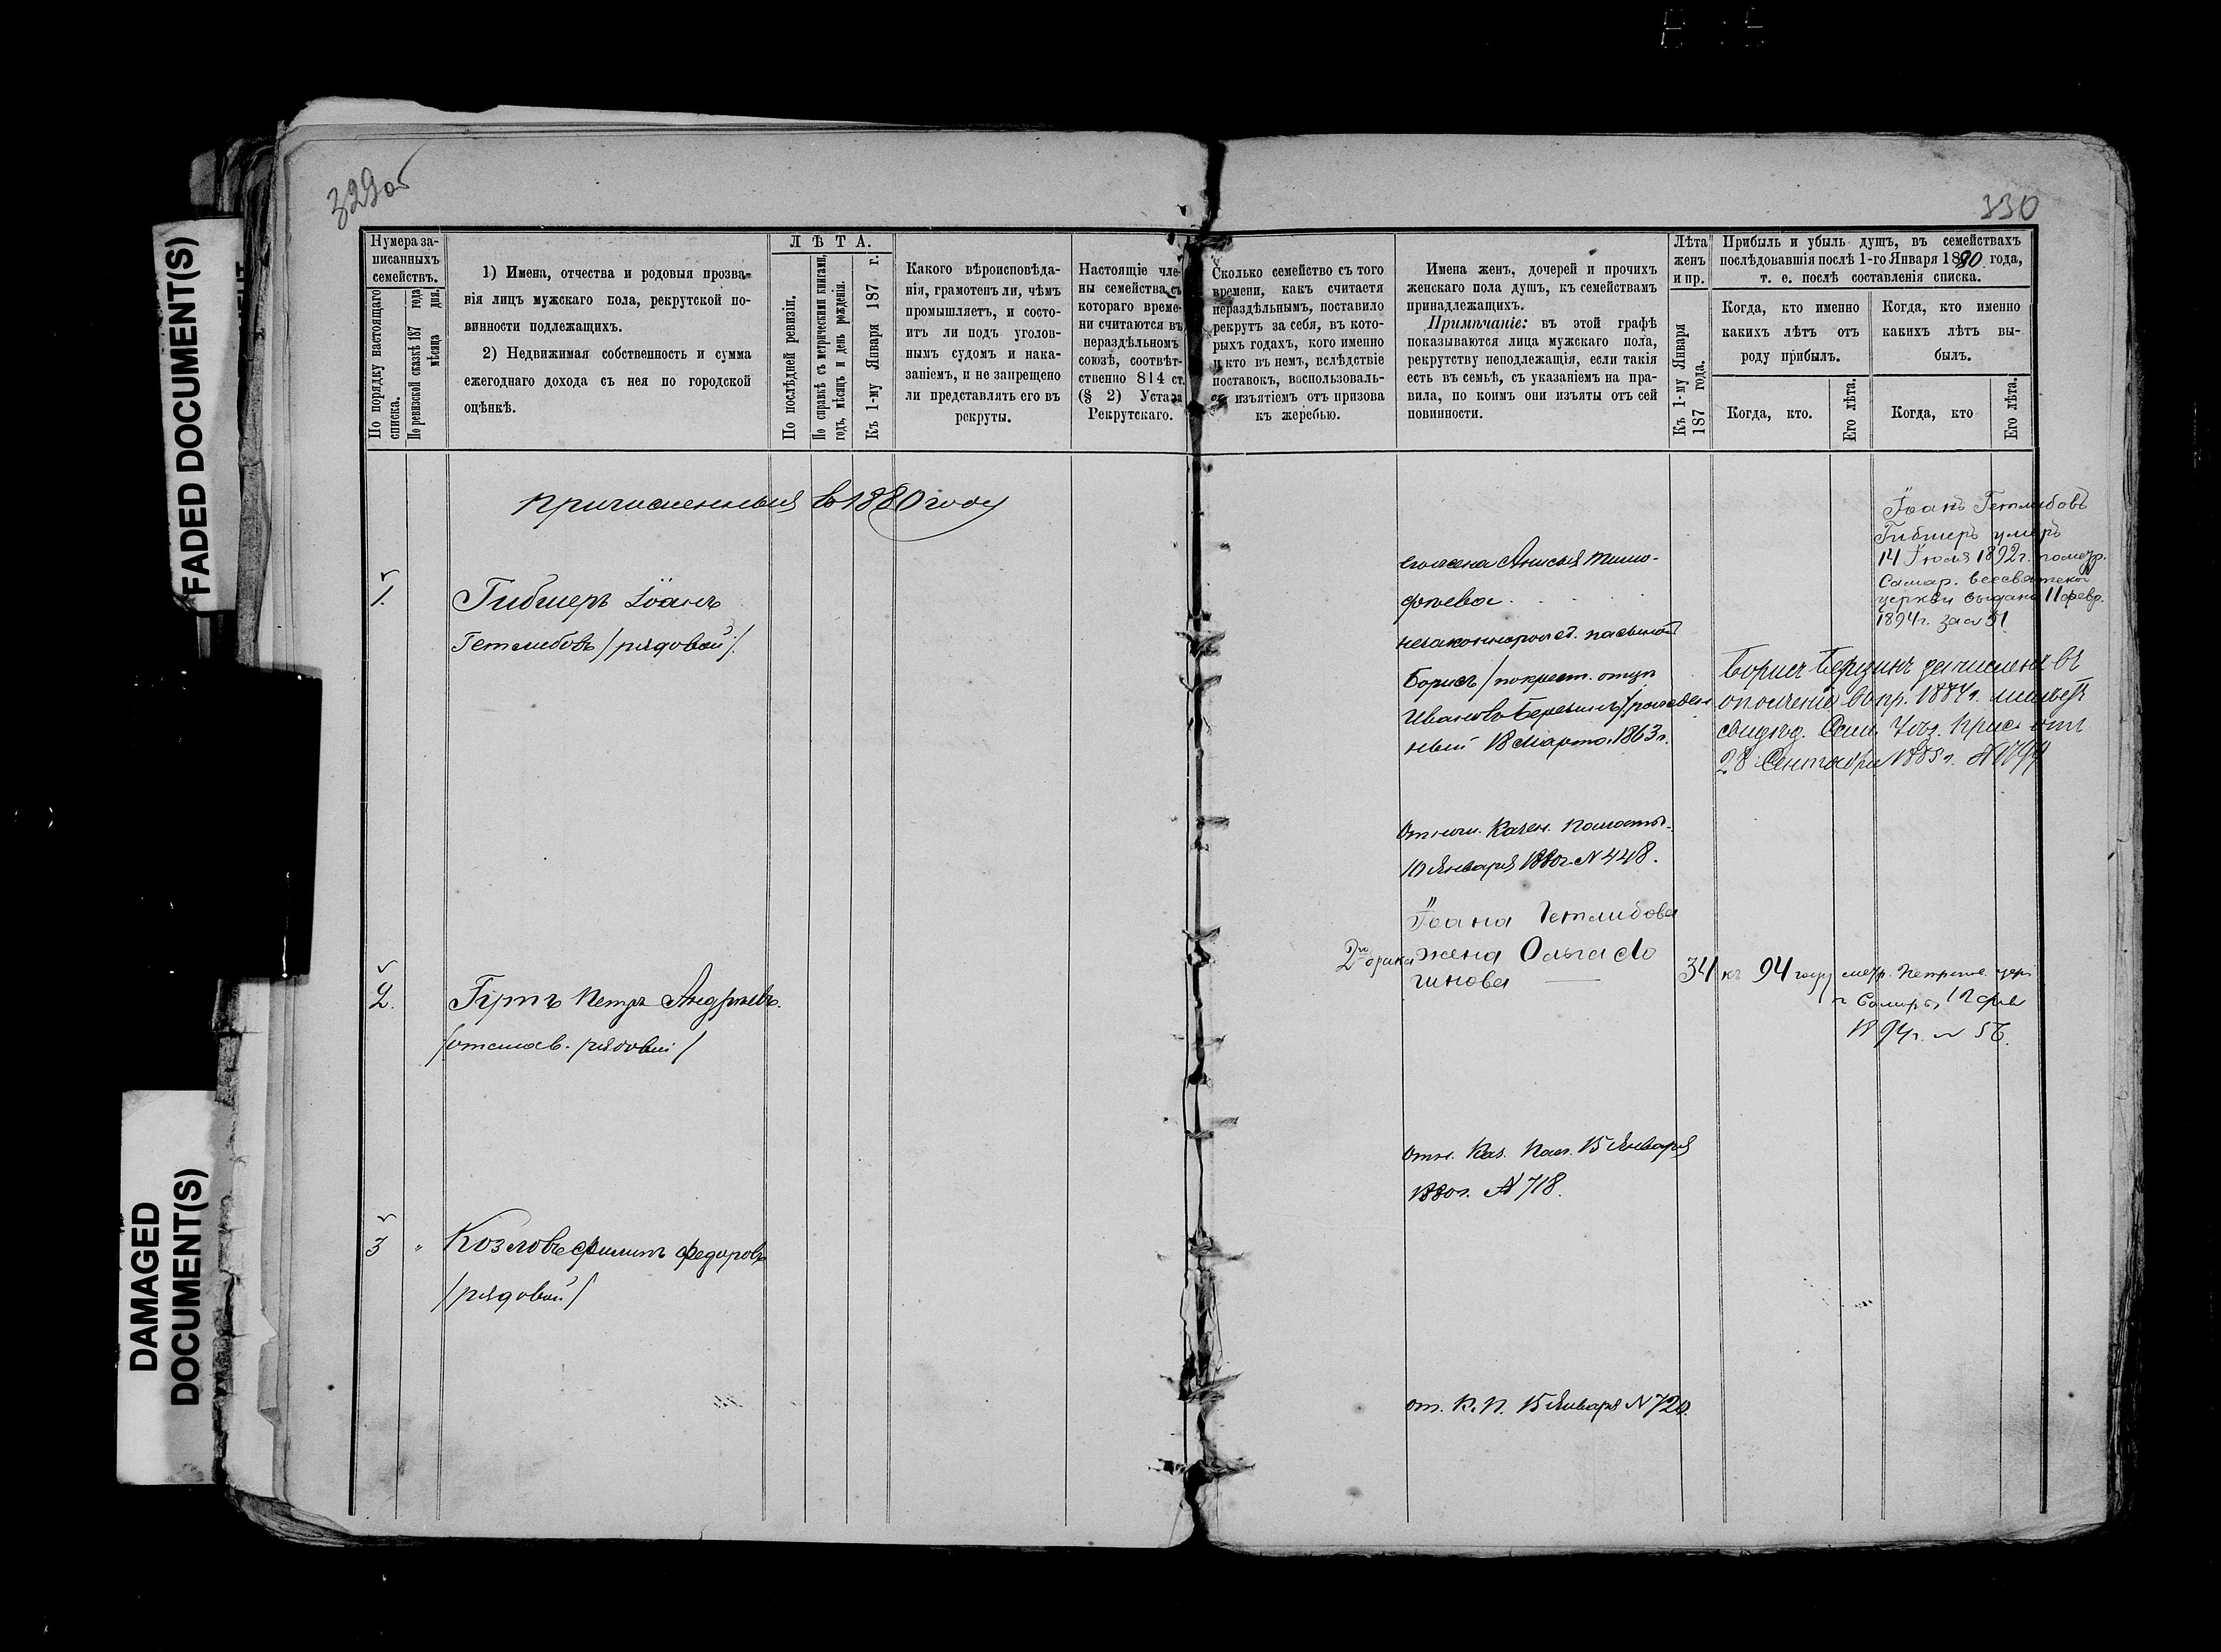 FADED DOCUMENT(S)
DAMAGED
DOCUMENT(S)
329об
330
Нумера за-
писанныхъ
семействъ.
По порядку настоящаго
списка.
По ревизской сказкѣ 187 года
мѣсяца дня.
1) Имена, отчества и родовыя прозва-
нія лицъ мужскаго пола, рекрутской по-
винности подлежащихъ.
2) Недвижимая собственность и сумма
ежегоднаго дохода съ нея по городской
оцѣнкѣ.
ЛѢТА.
По послѣдней ревизіи.
По справкѣ съ метрическими книгами,
годъ, мѣсяцъ и день рожденія.
Къ 1-му Января 187 г.
Какого вѣроисповѣда-
нія, грамотенъ ли, чѣмъ
промышляетъ, и состо-
итъ ли подъ уголов-
нымъ судомъ и нака-
заніемъ, и не запрещено
ли представлять его въ
рекруты.
Настоящіе чле-
ны семейства, съ
котораго време-
ни считаются въ
нераздѣльномъ
союзѣ, соотвѣт-
ственно 814 ст.
(§ 2) Устава
Рекрутскаго.
Сколько семейство съ того
времени, какъ считается
нераздѣльнымъ, поставило
рекрутъ за себя, въ кото-
рыхъ годахъ, кого именно
и кто въ немъ, вслѣдствіе
поставокъ, воспользоваль-
ся изъятіемъ отъ призова
къ жеребью.
Имена женъ, дочерей и прочихъ
женскаго пола душъ, къ семействамъ
принадлежащихъ.
Примѣчаніе: въ этой графѣ
показываются лица мужскаго пола,
рекрутству неподлежащія, если такія
есть въ семьѣ, съ указаніемъ на пра-
вила, по коимъ они изъяты отъ сей
повинности.
Лѣта
женъ
и пр.
Къ 1-му Января
187 года.
Прибыль и убыль душъ, въ семействахъ
послѣдовавшія послѣ 1-го Января 1880 года,
т. е. послѣ составленія списка.
Когда, кто именно
какихъ лѣтъ отъ
роду прибылъ.
Когда, кто именно
какихъ лѣтъ вы-
былъ.
Когда, кто.
Его лѣта.
Когда, кто
Его лѣта.
Причисленныя въ 1880 году
1.
Гибнеръ Іоанъ
Готлибовъ /рядовой/.
его жена Анисья Тимо-
фѣева
незаконнорожд. пасынокъ
Борисъ /по крест. отцу
Ивановъ Березинъ/ рожден
ный 18 Марта 1863 г.
Отнош. Казен. Палаты
10 Января 1880 г. N 448.
Іоанъ Готлибовъ
Гибнеръ умеръ
14 Іюля 1892 г. по метр.
Самар. Всесвятской
церкви выдана 11 февр.
1894 г. за N 51
Борисъ Березинъ зачисленъ въ
ополченіе въ пр. 1884 г. имѣетъ
свидѣт. Сам. Уѣз. Прис. отъ
28 Сентября 1885 г.
Іоана Готлибова
жена Ольга Ло
гинова
34 къ 94 году
метр. Петропа. цер
г. Самары 12 фев
1894 г. N 56.
2.
Гуртъ Петръ Андреевъ.
/отстав. рядовой/
Отн. Каз. Пал. 15 Января
1880 г. N 718.
3
Козловъ Филипъ Федоровъ
/рядовой/
от. К. П. 15 Января N 720.